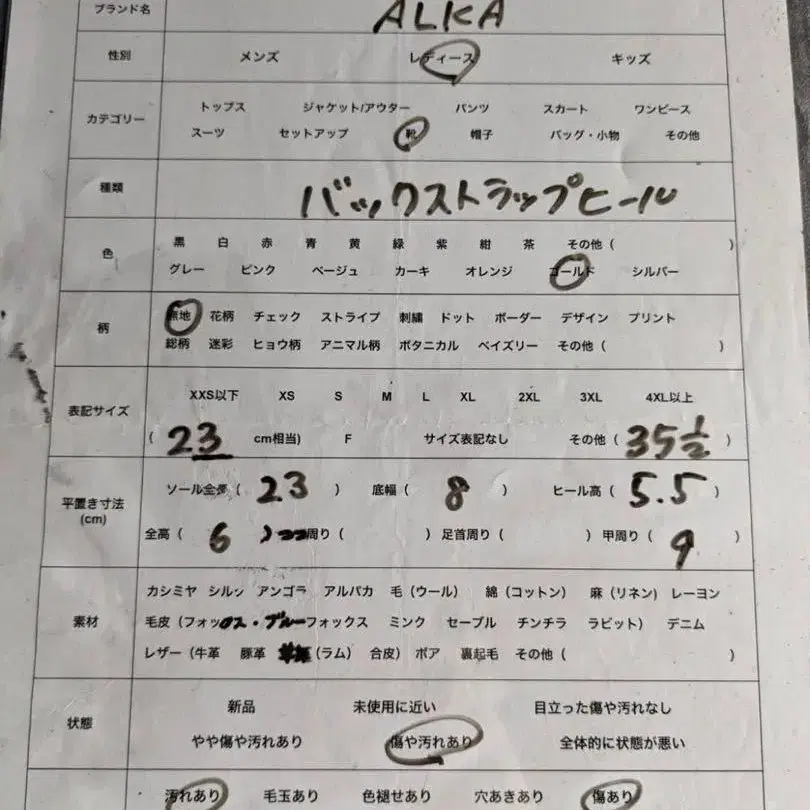 ブランド名 ALKA
性別 メンズ レディース キッズ
カテゴリー
トップス ジャケット/アウター パンツ スカート ワンピース
スーツ セットアップ 靴 帽子 バッグ・小物 その他
種類 バックストラップヒール
色
黒 白 赤 青 黄 緑 紫 紺 茶 その他 ( )
グレー ピンク ベージュ カーキ オレンジ ゴールド シルバー
柄
無地 花柄 チェック ストライプ 刺繍 ドット ボーダー デザイン プリント
総柄 迷彩 ヒョウ柄 アニマル柄 ボタニカル ペイズリー その他 ( )
表記サイズ
XXS以下 XS S M L XL 2XL 3XL 4XL以上
( 23 cm相当) F サイズ表記なし その他 ( 35 1/2 )
平置き寸法
(cm)
ソール全長 ( 23 ) 底幅 ( 8 ) ヒール高 ( 5.5 )
全高 ( 6 ) 周り ( ) 足首周り ( ) 甲周り ( 9 )
素材
カシミヤ シルク アンゴラ アルパカ 毛 (ウール) 綿 (コットン) 麻 (リネン) レーヨン
毛皮 (フォックス・ブルーフォックス ミンク セーブル チンチラ ラビット) デニム
レザー (牛革 豚革 (ラム) 合皮) ボア 裏起毛 その他 ( )
状態
新品 未使用に近い 目立った傷や汚れなし
やや傷や汚れあり 傷や汚れあり 全体的に状態が悪い
汚れあり 毛玉あり 色褪せあり 穴あきあり 傷あり